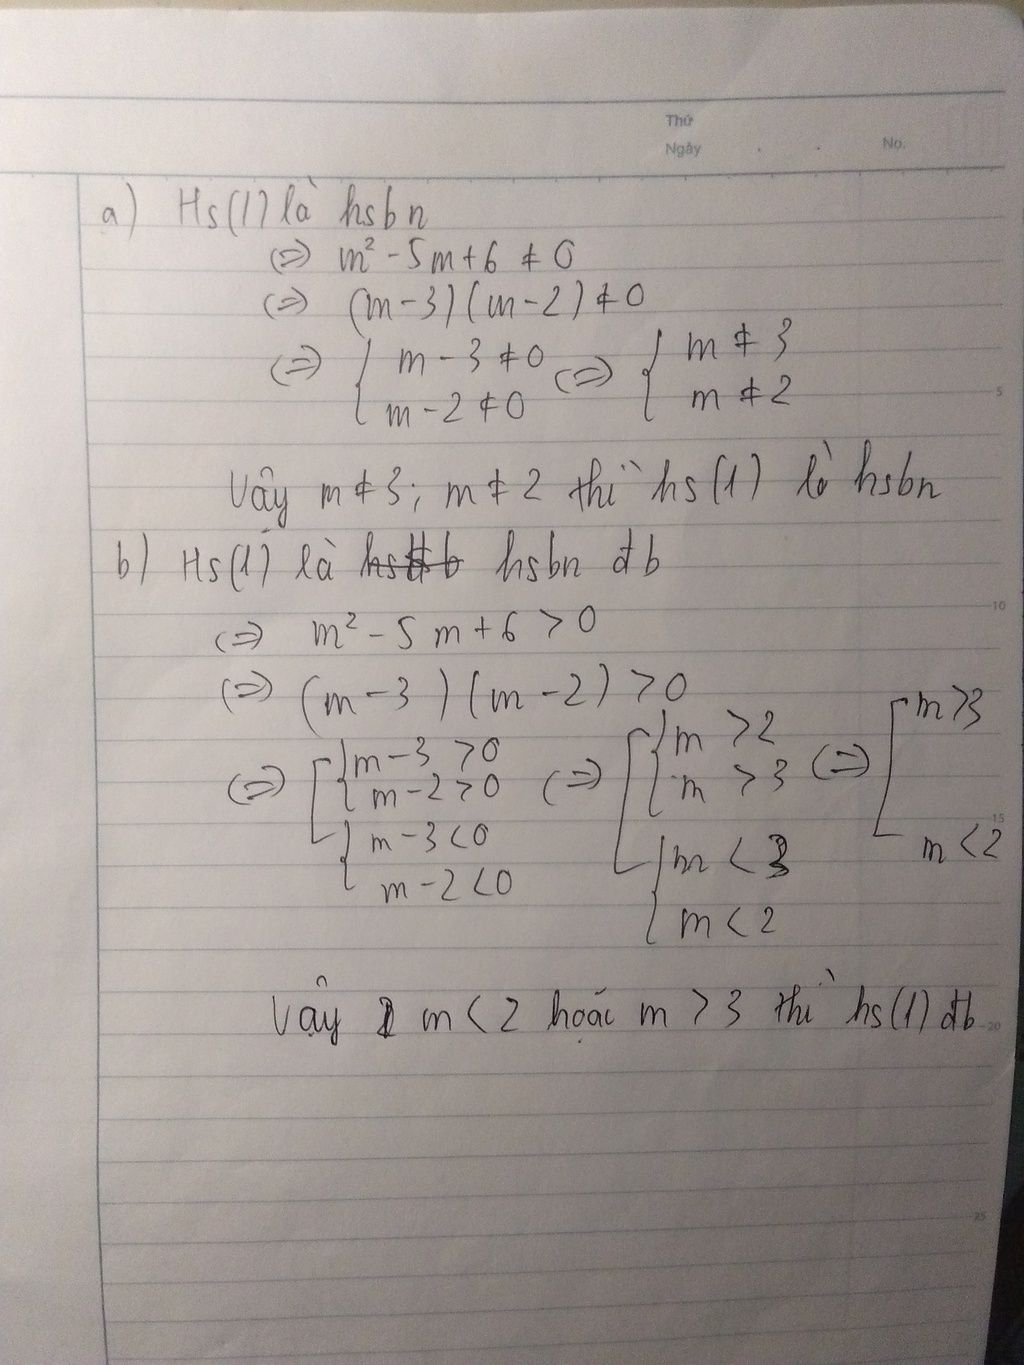 Thứ
Ngày . . No.
a) Hs(1) là hsbn
(=) m² - 5m + 6 ≠ 0
(=) (m - 3)(m - 2) ≠ 0
(=) { m - 3 ≠ 0 (=) { m ≠ 3
m - 2 ≠ 0 m ≠ 2
5
Vây m ≠ 3; m ≠ 2 thì hs(1) là hsbn
b) Hs(1) là hsbn đb
10
(=) m² - 5m + 6 > 0
(=) (m - 3)(m - 2) > 0
(=) [ { m - 3 > 0 (=) [ { m > 2 (=) [ m > 3
m - 2 > 0 m > 3
15
{ m - 3 < 0 { m < 3 m < 2
m - 2 < 0 m < 2
Vậy m < 2 hoặc m > 3 thì hs(1) đb
20
25